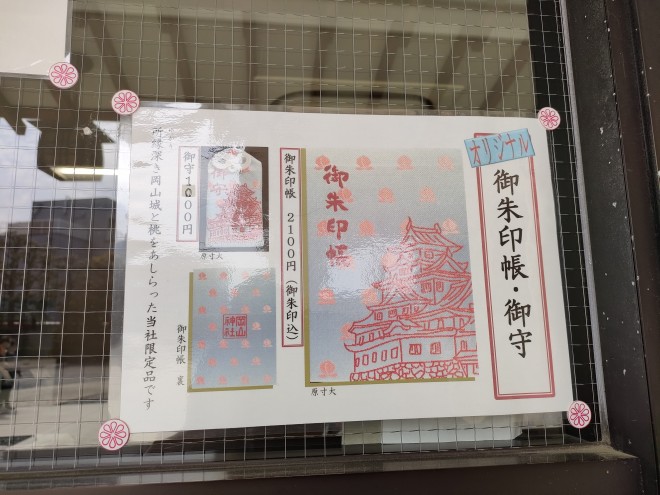 オリジナル
御朱印帳・御守
御朱印帳
原寸大
御朱印帳 2100円（御朱印込）
御守
原寸大
御守1000円
岡山
神社
御朱印帳 裏
所縁深き岡山城と桃をあしらった当社限定品です